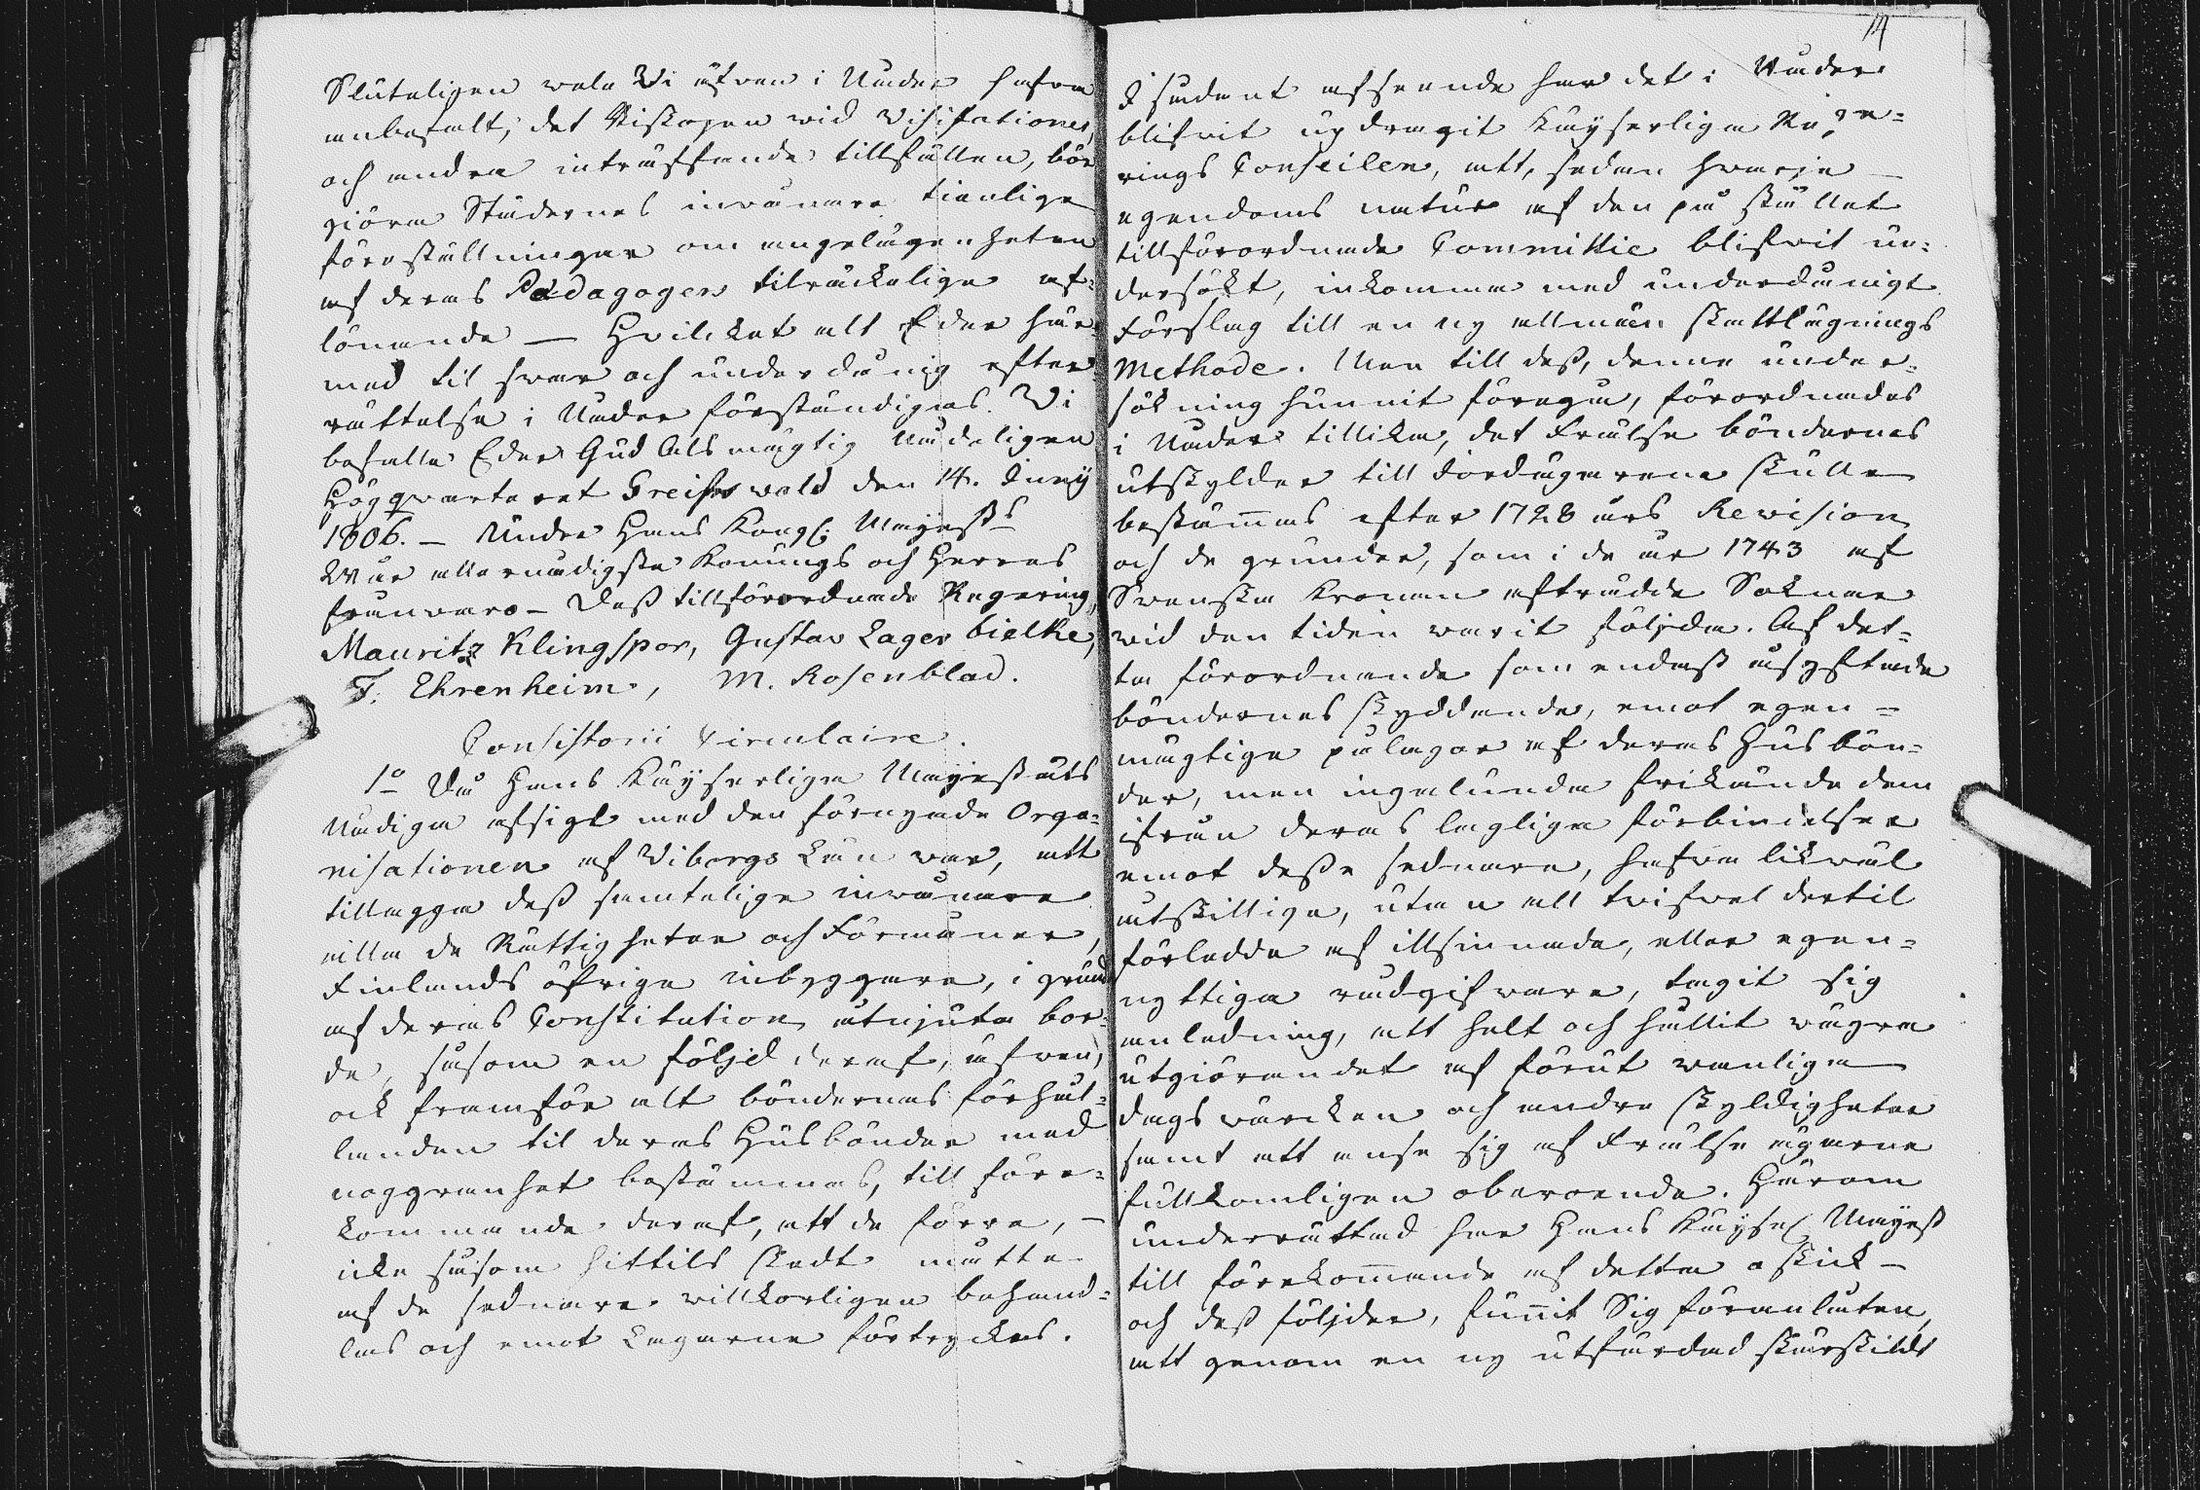 Sluteligen wele Vi äfven i Nåder hafva
anbefalt, det Biskopen wid Visitationer,
och andra inträffande tillfällen, bör
giöra Städernes invånare tienlige
föreställningar om angelägenheten
af deras Pædagogers tilräckelige af-
lönande — Hvilcket alt Eder här-
med til svar och underdånig efter
rättelse i Nåder förständigas. Vi
befalle Eder Gud Alsmägtig Nådeligen
Högqvarteret Greifswald den 14. Juny
1806. — Under Hans Kongl. Mayest:s
Wår allernådigste Konungs och Herres
frånvaro — Dess tillförordnade Regering,
Mauritz Klingspor, Gustav Lagerbielke,
F. Ehrenheim, M. Rosenblad.
Consistorii Circulaire.
1o Då Hans Kayserliga Mayestäts
Nådiga afsigt med den förnyade Orga-
nisationen af Viborgs Län war, att
tillägga dess samtelige invånare
alla de Rättigheter och Förmåner,
Finlands öfrige inbyggare, i grund
af deras Constitution åtnjuta bor-
de, såsom en följd deraf, äfven,
ock framför alt böndernas förhål-
landen til deras Husbönder med
noggranhet bestämmas, till före-
kommande deraf, att de förra, —
icke såsom hittils skedt måtte
af de sednare villkorligen behand-
las och emot Lagarne förtryckas.
14
I sådant afseende har det i Nåder
blifvit updragit Kayserliga Rege-
rings Conseilen, att, sedan hvarje —
egendoms natur af den på stället
tillförordnade Committie blifvit un-
dersökt, inkomma med underdånigt
Förslag till en ny allmän skattlägnings
Methode. Men till dess, denne under-
sökning hunnit föregå, förordnades
i Nåder tillika, det Frälse böndernas
utskylder till Jordägarena skulle
bestämmas efter 1728 års Revision
och de grunder, som i de år 1743 af
Svenska Kronan afträdde Soknar
wid den tiden warit följda. Af det-
ta förordnande som endast åsyftade
böndernas skyddande, emot egen-
mägtiga pålagor af deras Husbön-
der, men ingalunda frikände dem
ifrån deras lagliga förbindelser
emot desse sednare, hafva likväl
åtskillige, utan all tvifvel dertil
förledde af illsinnade, eller egen-
nyttiga rådgifvare, tagit sig
anledning, att helt och hållit wägra
utgiörandet af förut vanliga
dagswärcken och andra skyldigheter
samt att anse sig af Frälse ägarne
fullkomligen oberoende. Härom
underrättad har Hans Kaysel Mayest
till förekommande af detta oskick —
och dess följder, funnit Sig föranlåten,
att genom en ny utfärdad särskildt